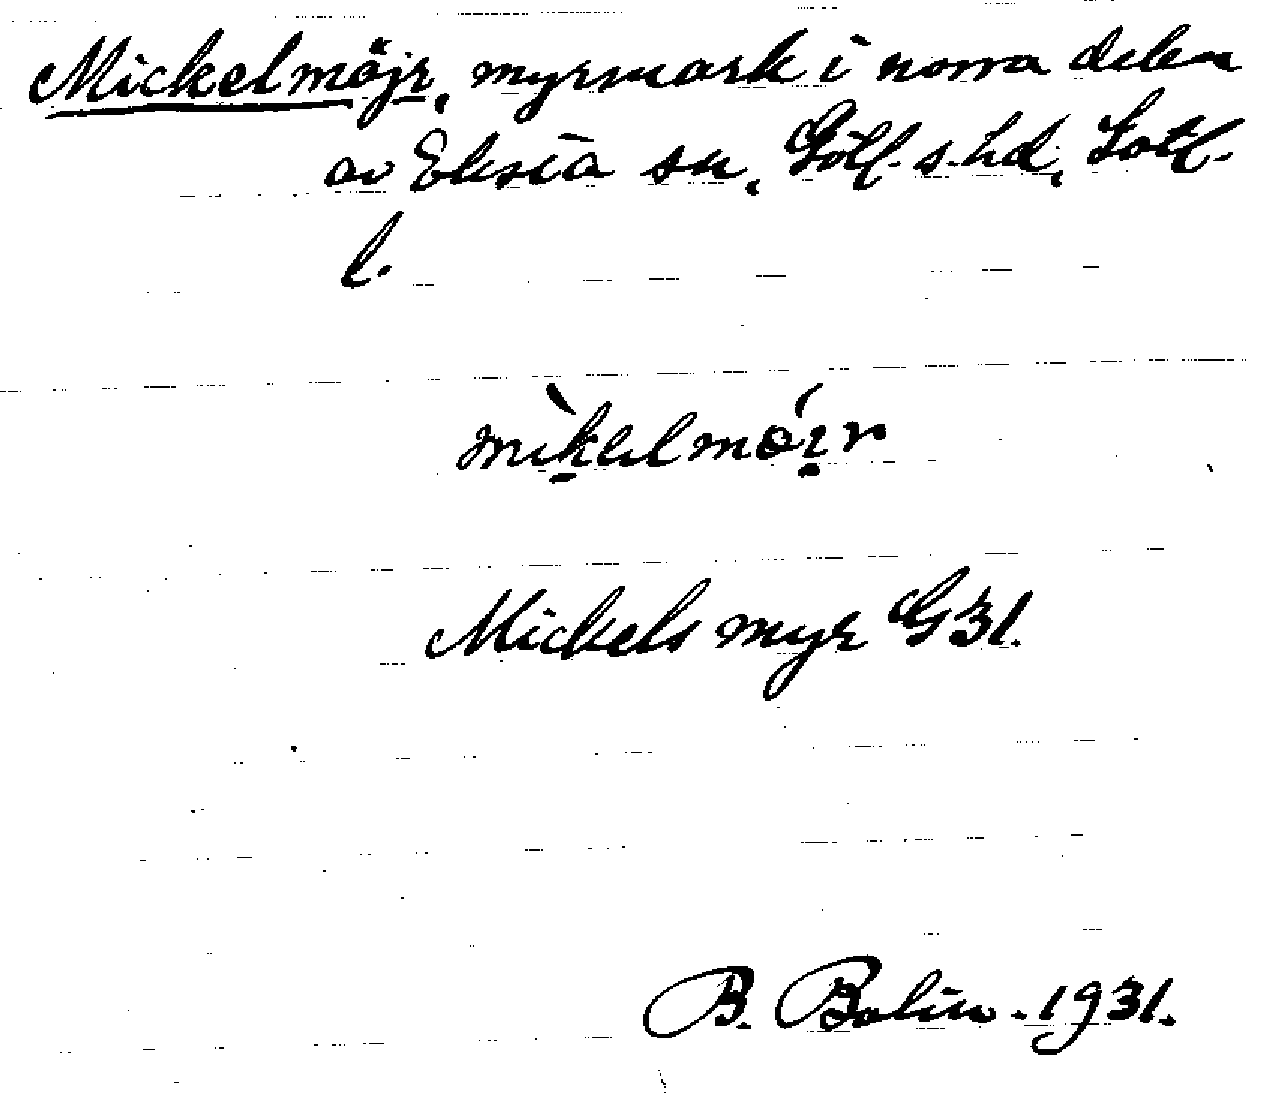 Mickelmöjr, myrmark i norra delen
av Eksta sn, Gotl. s. hd, Gotl.
l.
mìkelmói̯r
Mickels myr G31.
B. Bolin. 1931.